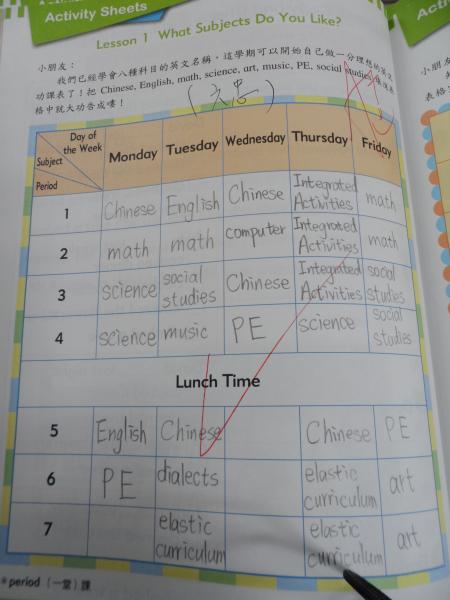 Activity Sheets
Activity
Lesson 1 What Subjects Do You Like?
小朋友：
我們已經學會八種科目的英文名稱，這學期可以開始自己做一分理想的英文
功課表了！把 Chinese, English, math, science, art, music, PE, social studies
格中就大功告成嘍！
小朋
表格
Day of
the Week
Subject
Period
Monday Tuesday Wednesday Thursday Friday
1 Chinese English Chinese Integrated Activities math
2 math math computer Integrated Activities math
3 science social studies Chinese Integrated Activities social studies
4 science music PE science social studies
Lunch Time
5 English Chinese Chinese PE
6 PE dialects elastic curriculum art
7 elastic curriculum elastic curriculum art
*period （一堂）課